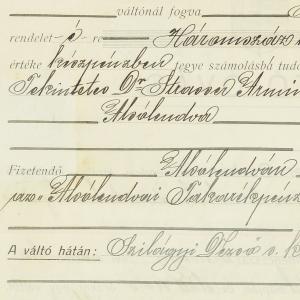 váltónál fogva
rendelet é re Háromszáz
értéke készpénzben tegye számolásba
Tekintetes Dr Strasser Ármin
Alsólendva
Fizetendő Alsólendván
Alsólendvai Takarékpénz
A váltó hátán: Szilágyi Dezső s. k